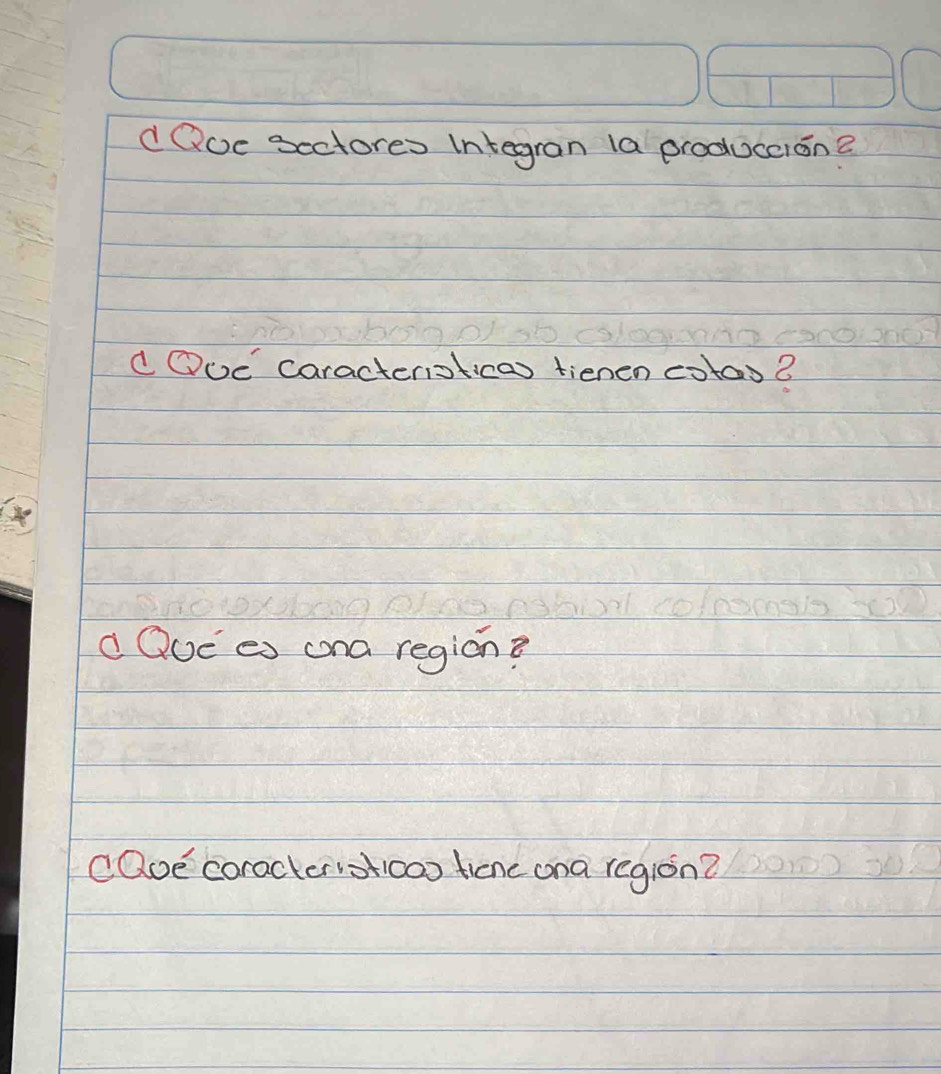 ¿Que sectores integran la producción?
¿Qué caracteristicas tienen estas?
¿Qué es una región?
¿Qué caracteristicas tiene una región?